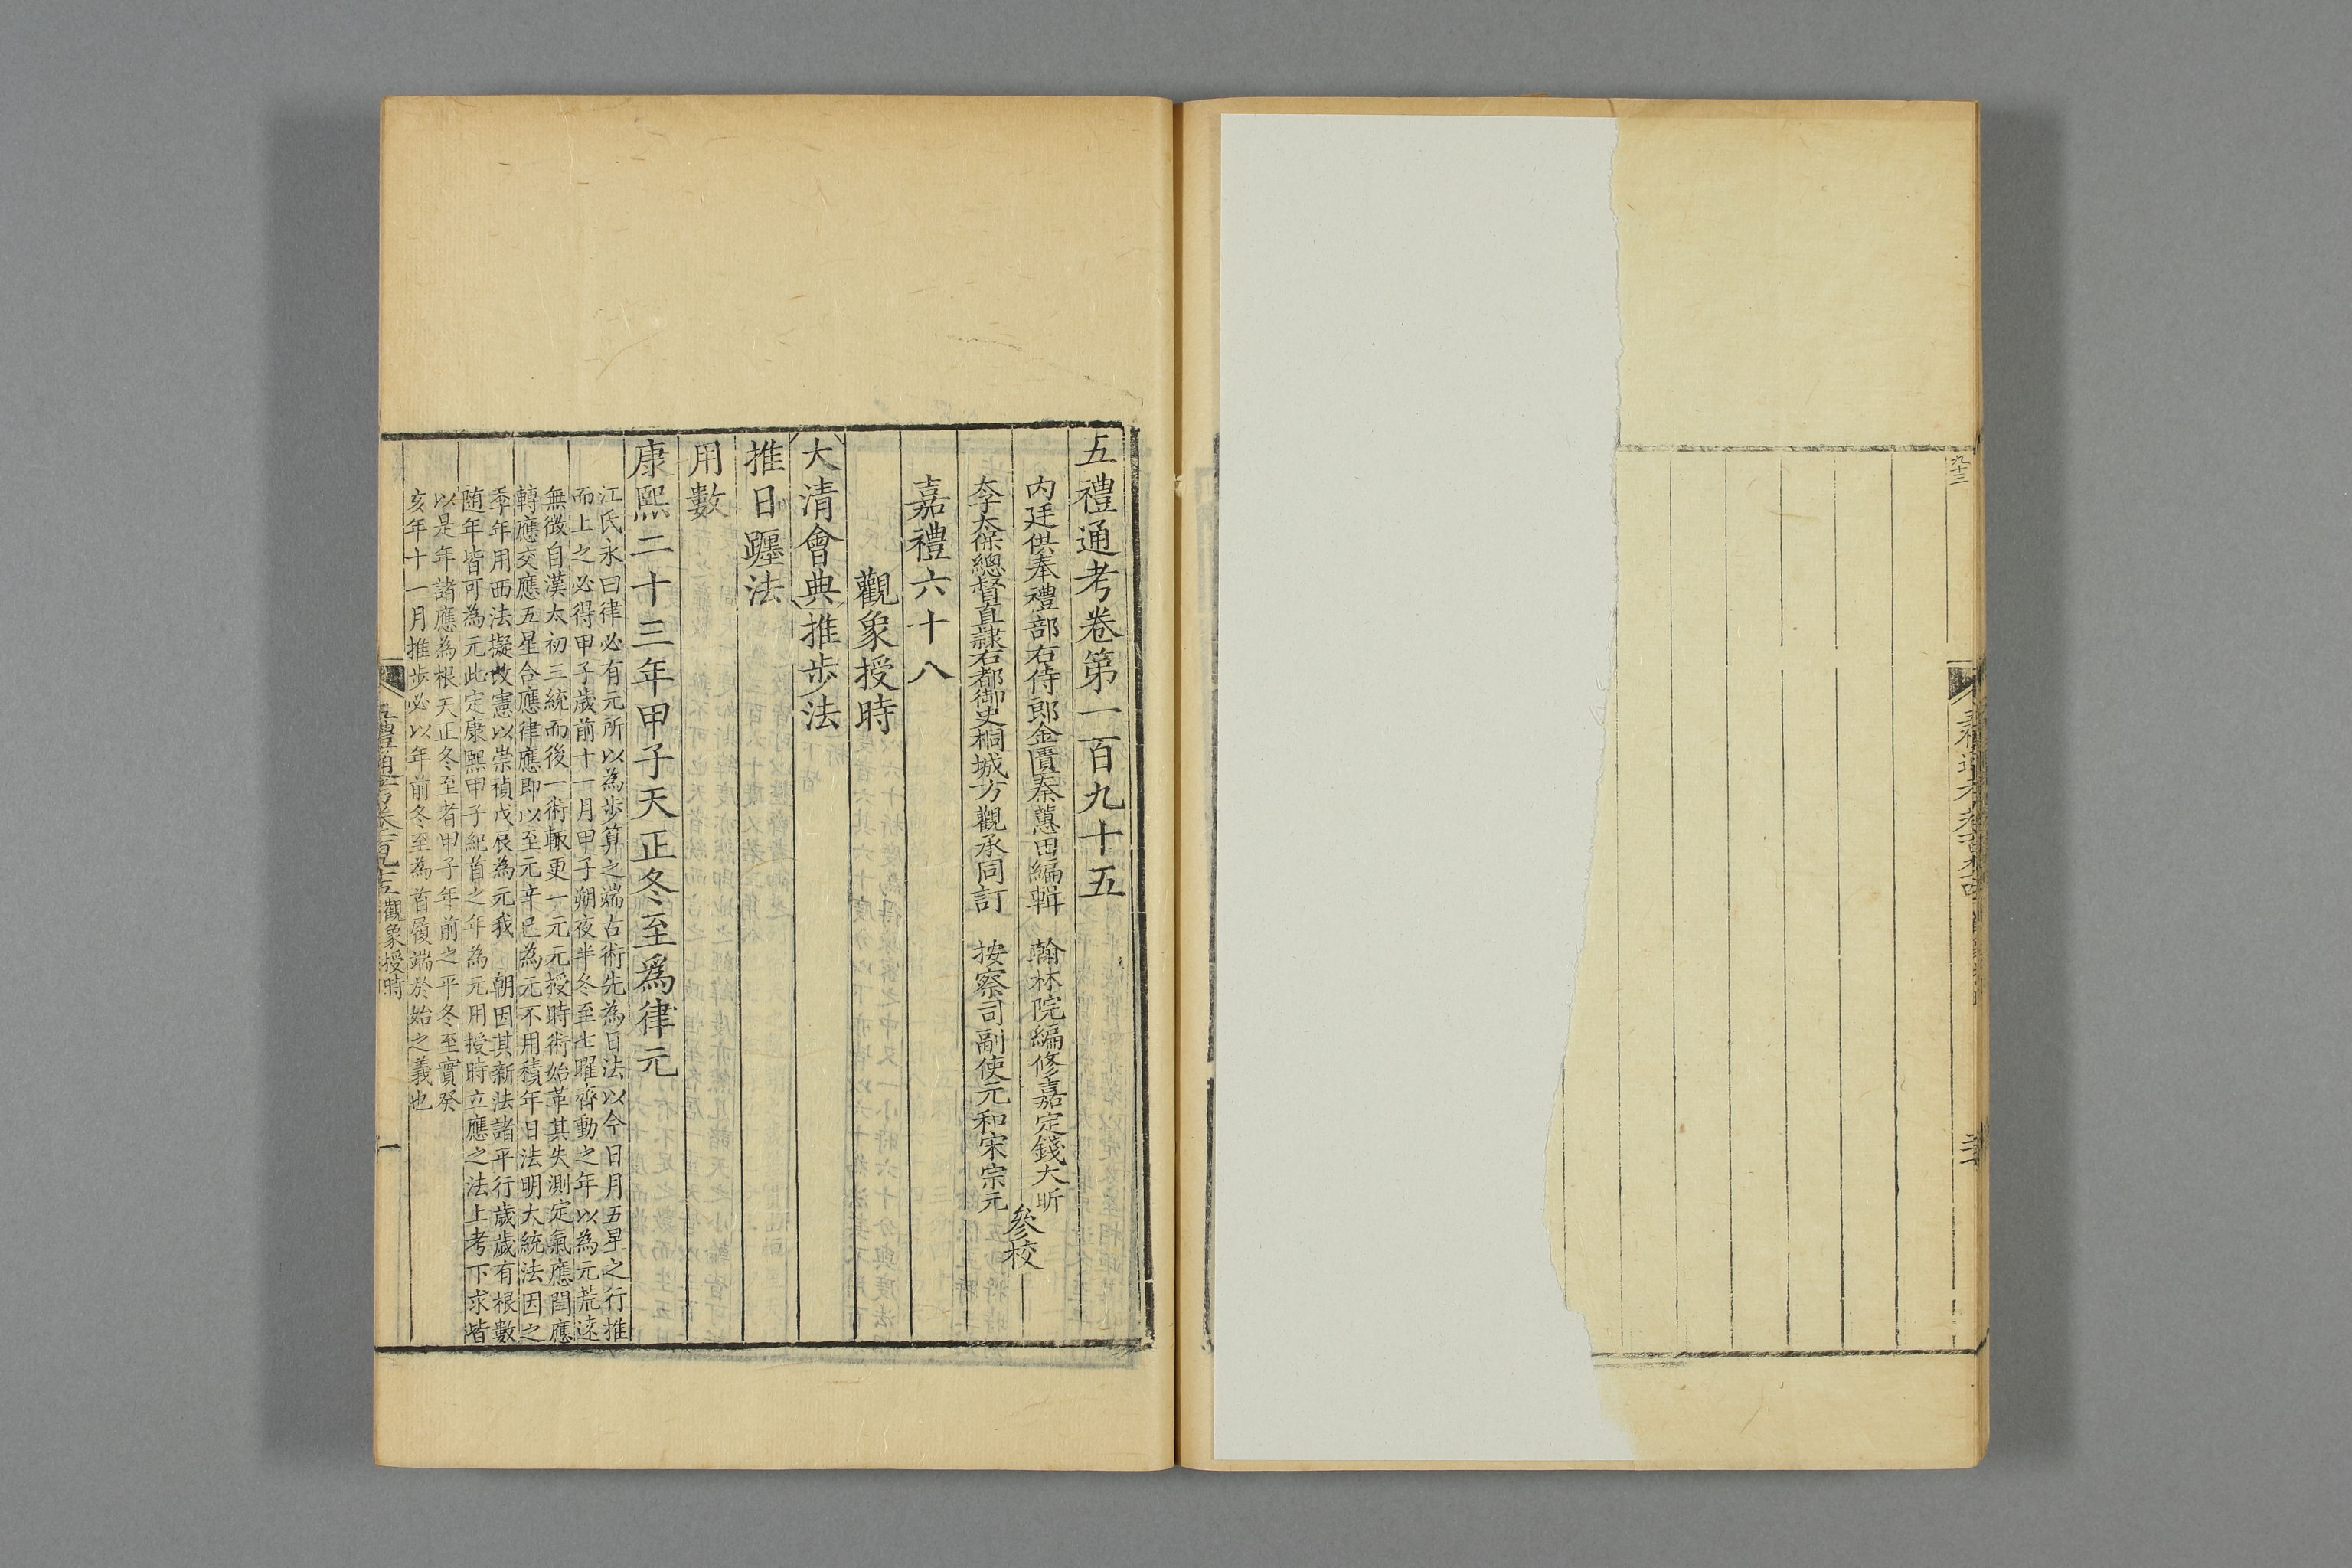 九十三
五禮通考卷第一百九十五
內廷供奉禮部右侍郎金匱秦蕙田編輯
太子太保總督直隸右都御史桐城方觀承同訂
翰林院編修嘉定錢大昕
按察司副使元和宋宗元
參校
嘉禮六十八
觀象授時
大清會典推步法
推日躔法
用數
康熙二十三年甲子天正冬至為律元
江氏永曰律必有元所以為步算之端古術先為日法以今日月五星之行推
而上之必得甲子歲前十一月甲子朔夜半冬至七曜齊動之年以為元荒遠
無徵自漢太初三統而後一術輒更一元元授時術始革其失測定氣應閏應
轉應交應五星合應律應即以至元辛巳為元不用積年日法明大統法因之
季年用西法擬改憲以崇禎戊辰為元我 朝因其新法諸平行歲歲有根數
随年皆可為元此定康熙甲子紀首之年為元用授時立應之法上考下求皆
以是年諸應為根天正冬至者甲子年前之平冬至實癸
亥年十一月推步必以年前冬至為首履端於始之義也
五禮通考卷一百九十五 觀象授時
一